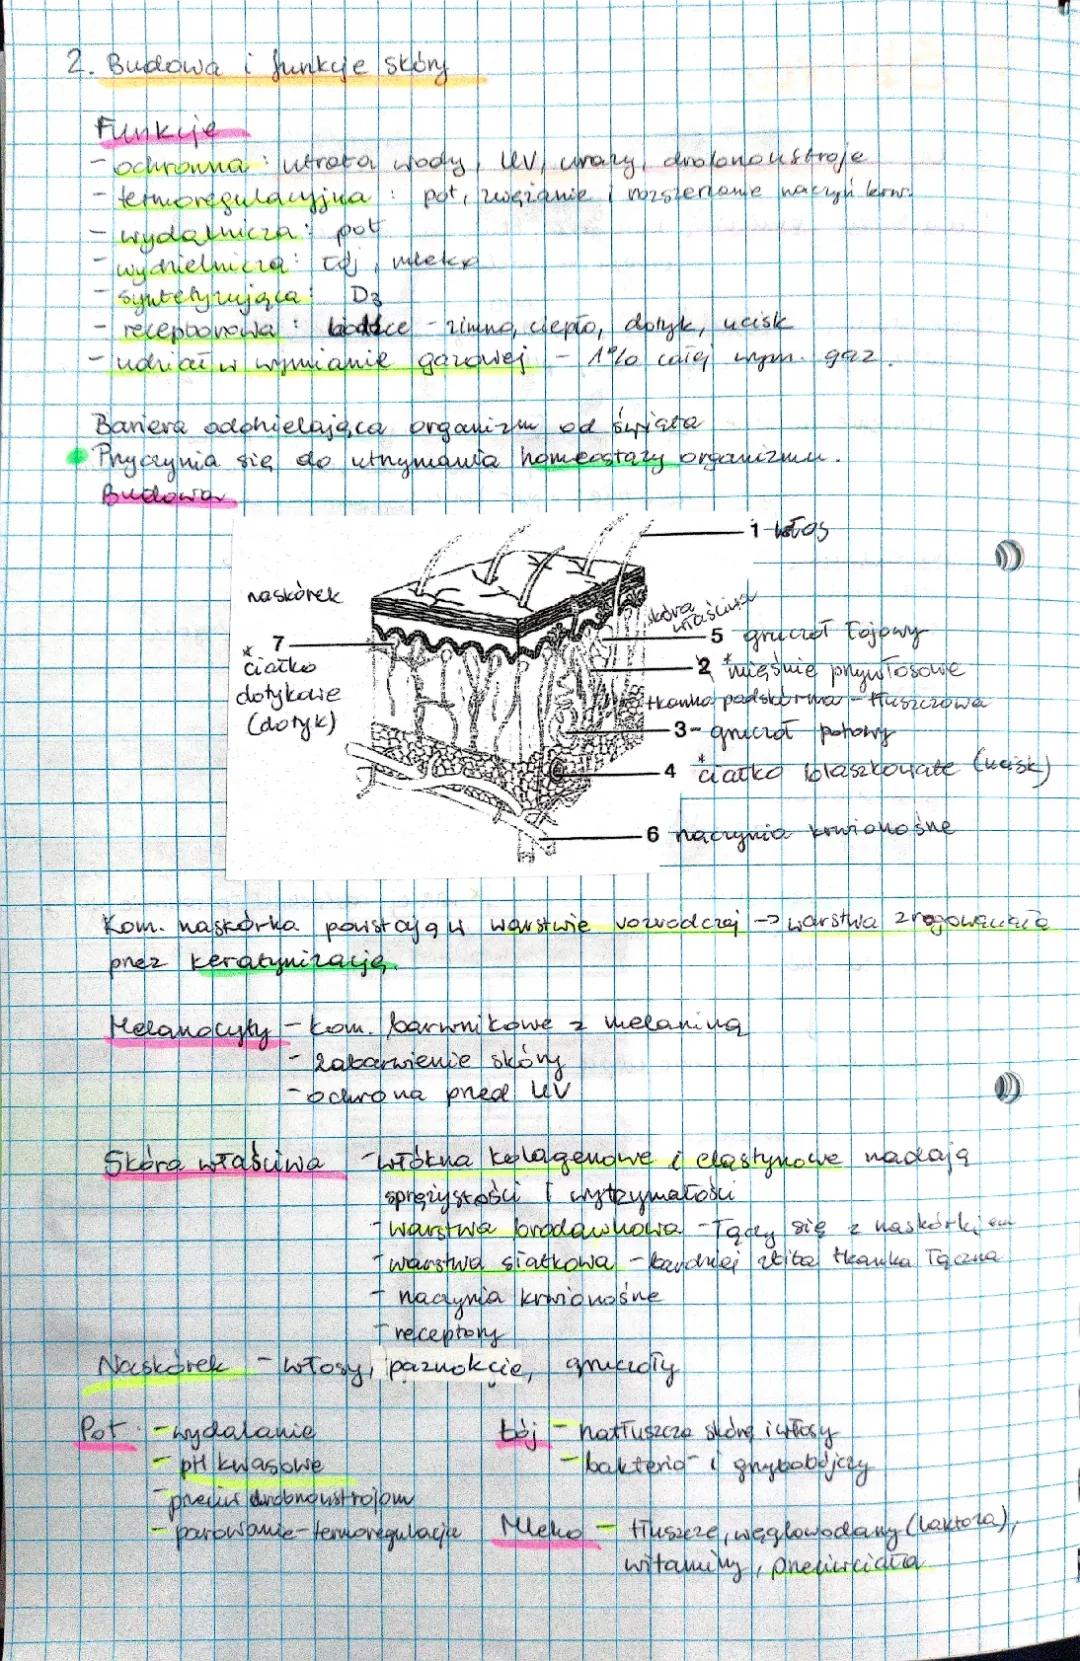 2. Budowa i funkcje skóry
Funkcje
- ochronna: utrata wody, UV, urazy, drobnoustroje
- termoregulacyjna: pot, zwężanie i rozszerzanie naczyń krw.
- wydalnicza: pot
- wydzielnicza: łój, mleko
- syntetyzująca: D3
- receptorowa: bodźce - zimno, ciepło, dotyk, ucisk
- udział w wymianie gazowej - 1% całej wym. gaz.
Bariera oddzielająca organizm od świata
Przyczynia się do utrzymania homeostazy organizmu.
Budowa
1 włos
naskórek
skóra właściwa
5 gruczoł łojowy
7
* ciałko dotykowe (dotyk)
2 * mięśnie przywłosowe
tkanka podskórna - tłuszczowa
3 - gruczoł potowy
4 * ciałko blaszkowate (ucisk)
6 naczynia krwionośne
Kom. naskórka powstają w warstwie rozrodczej → warstwa zrogowaciała
przez keratynizację.
Melanocyty - kom. barwnikowe z melaniną
- zabarwienie skóry
- ochrona przed UV
Skóra właściwa - włókna kolagenowe i elastynowe nadają
sprężystości i wytrzymałości
- warstwa brodawkowa - łączy się z naskórkiem
- warstwa siatkowa - bardziej zbita tkanka łączna
- naczynia krwionośne
- receptory
Naskórek - włosy, paznokcie, gruczoły
Pot: - wydalanie
- pH kwasowe
- przeciw drobnoustrojom
- parowanie - termoregulacja
Łój - natłuszcza skórę i włosy
- bakterio- i grzybobójczy
Mleko - tłuszcze, węglowodany (laktoza),
witaminy, przeciwciała